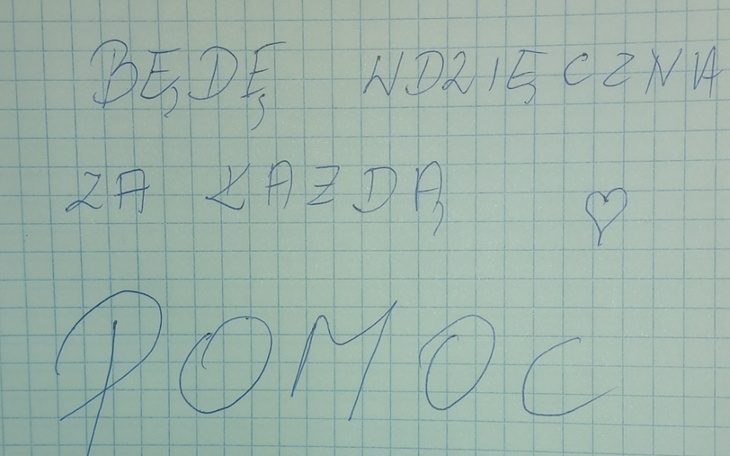 BĘDĘ WDZIĘCZNA
ZA KAŻDĄ ♡
POMOC